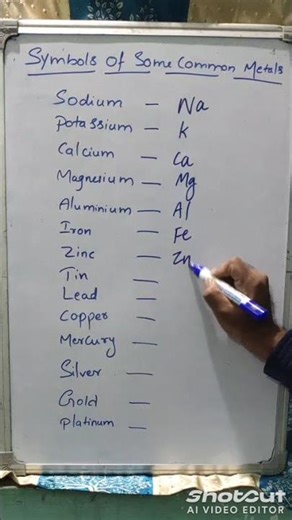 Symbols of Some Common Metals
Sodium — Na
Potassium — K
Calcium — Ca
Magnesium — Mg
Aluminium — Al
Iron — Fe
Zinc — Zn
Tin —
Lead —
Copper —
Mercury —
Silver —
Gold —
Platinum —
ShotCut
AI VIDEO EDITOR